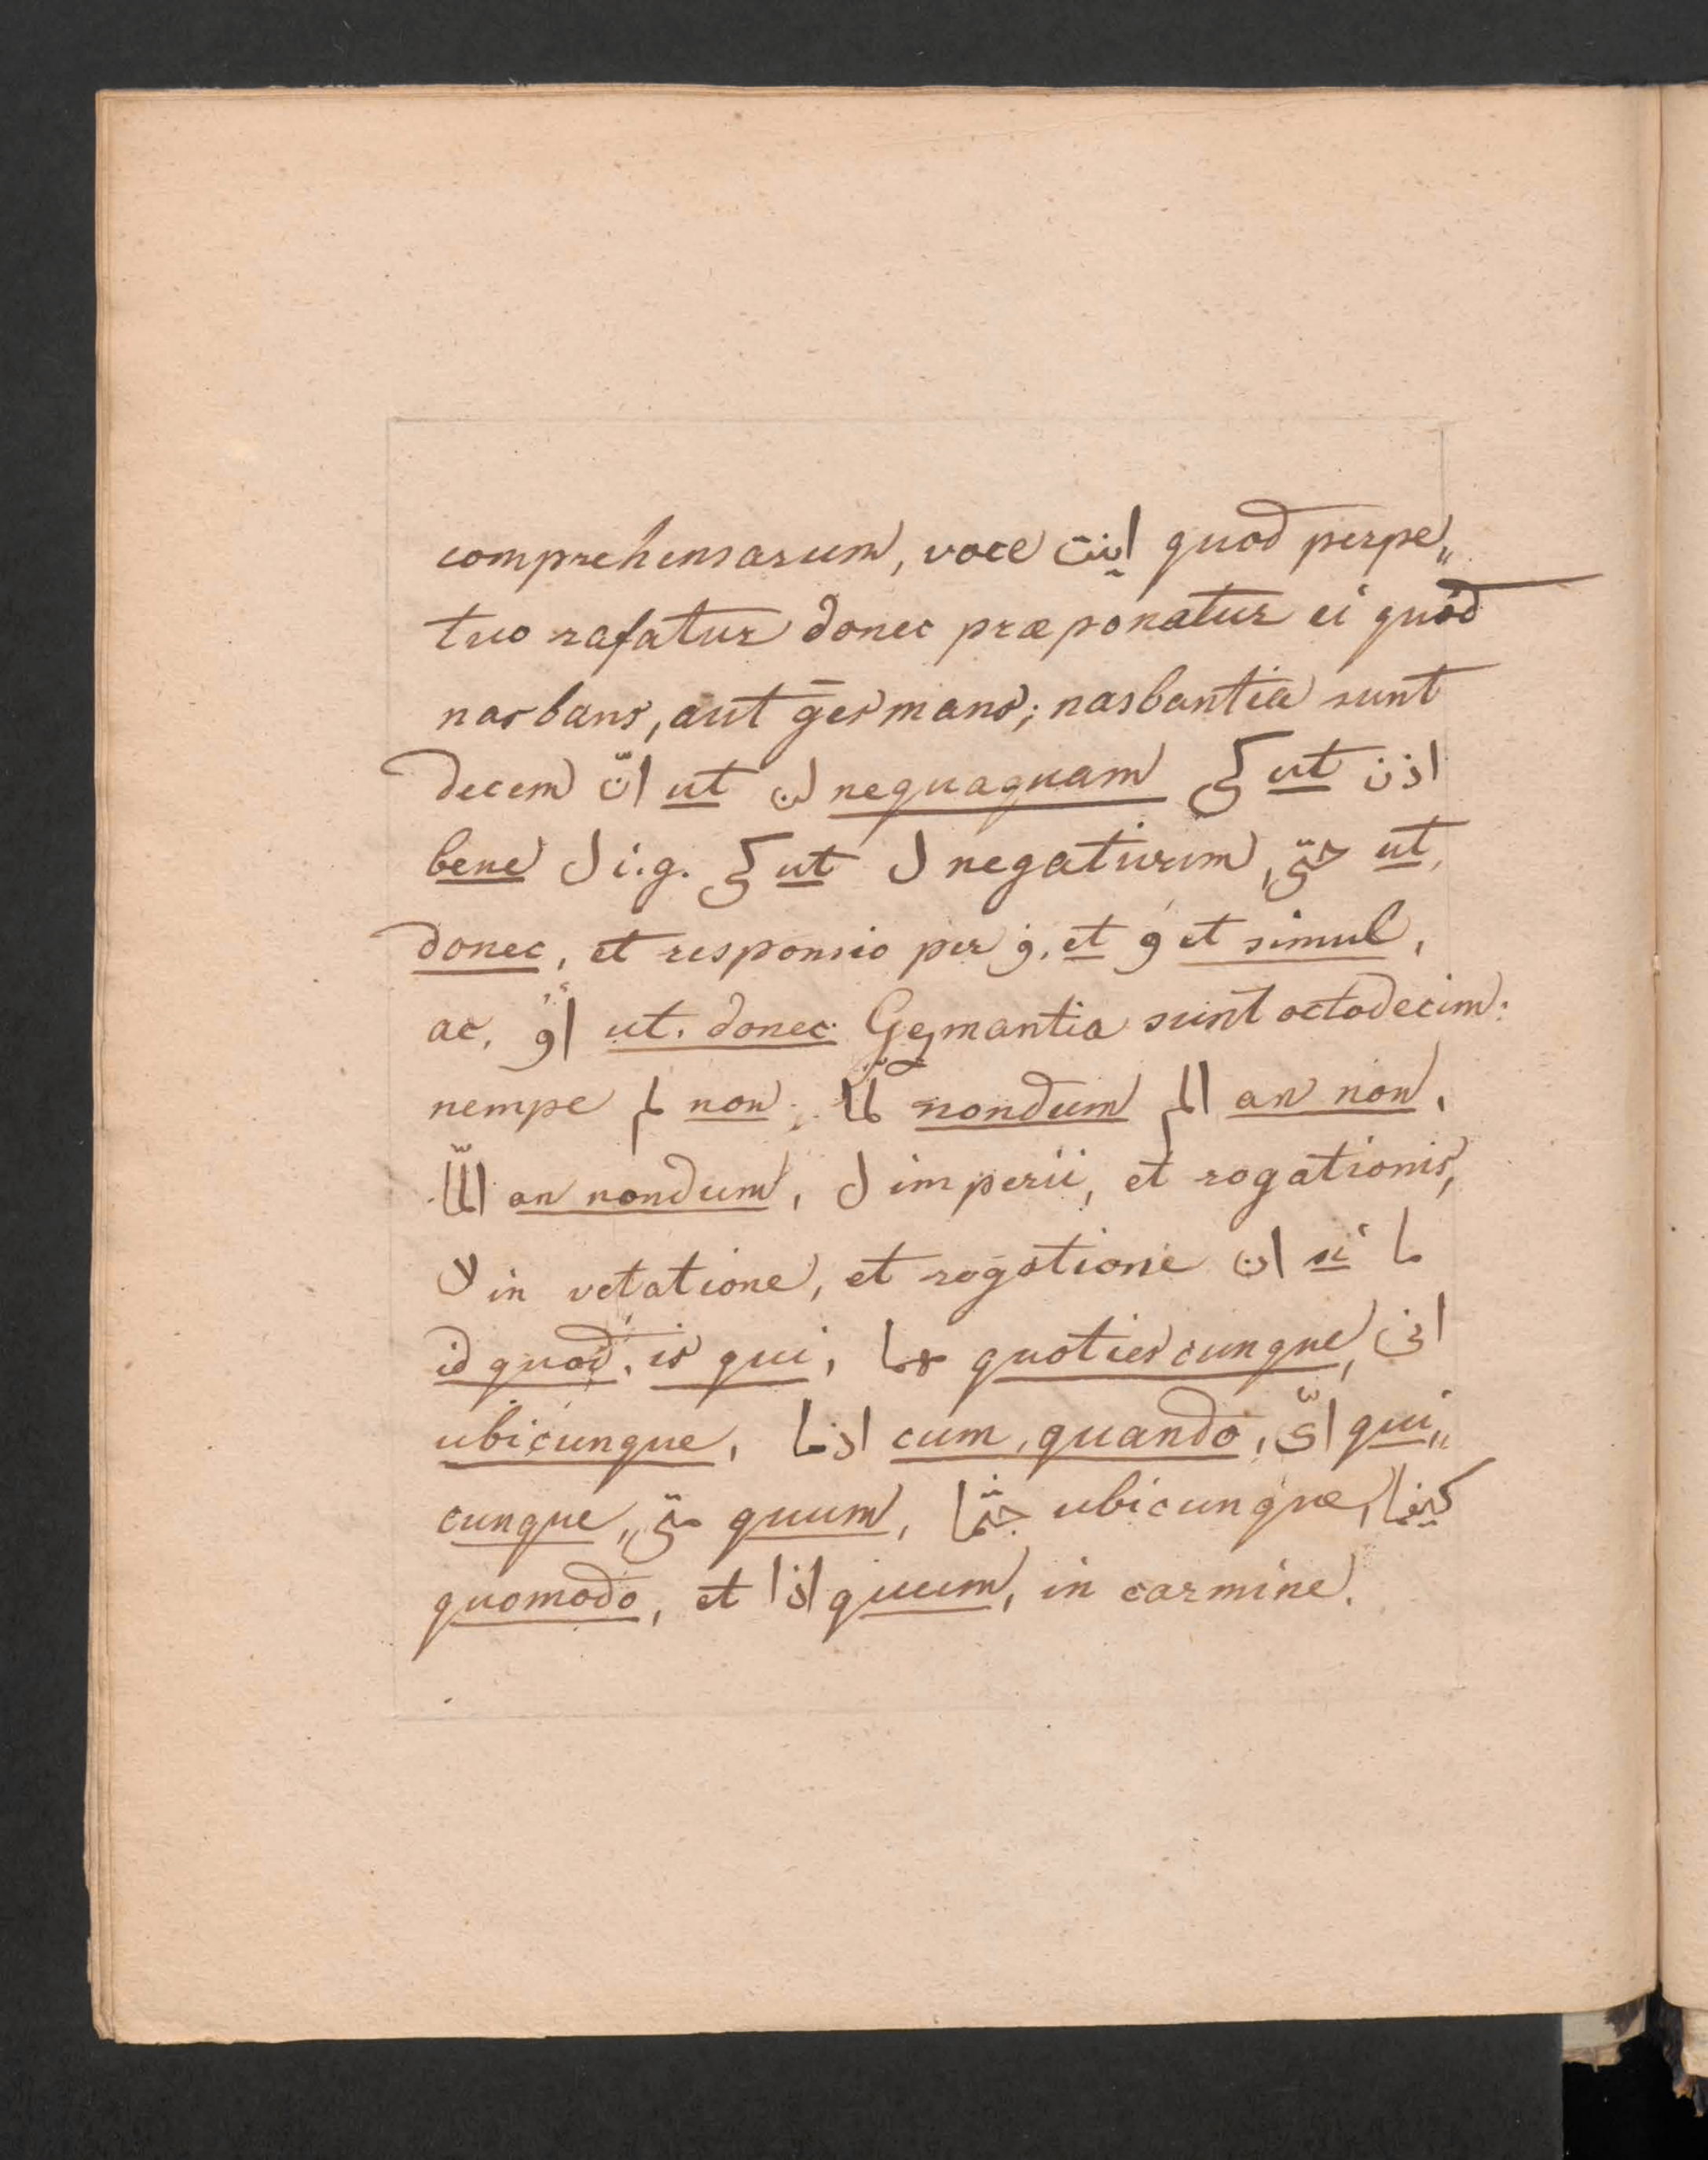 comprehensarum, voce اينت quod perpe„
tuo rafatur donec præponatur ei quód
nasbans, aut gesmans; nasbantia sunt
decem انّ ut لن nequaquam كى ut اذن
bene ل i.g. كى ut ل negativum, حتّى ut,
donec, et responsio per ف, et و et simul,
ac, اوْ ut. donec. Gesmantia sunt octodecim:
nempe لم non, لما nondum الم an non,
المّا an nondum, ل imperii, et rogationis,
لا in vetatione, et rogatione ان si ما
id quod, is qui, مهما quotiescunque, انى
ubicunque, اذما cum, quando, اىّ qui„
cunque„ متى quum, حيثما ubicunque, كيفما
quomodo, et اذا quum, in carmine.